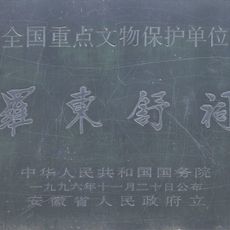 全国重点文物保护单位
羅東舒祠
中华人民共和国国务院
一九九六年十一月二十日公布
安徽省人民政府立